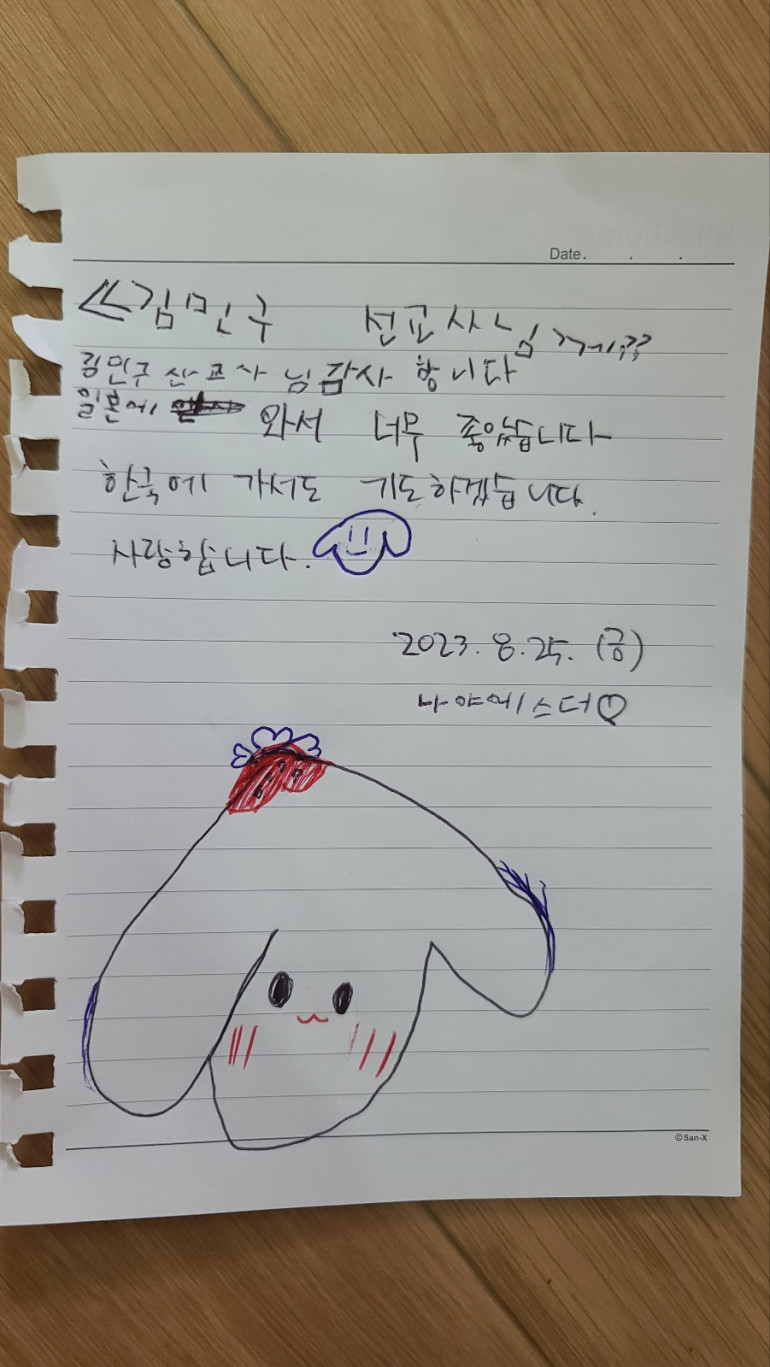 Date. . .
≪김민구 선교사님께??
김민구 선교사님 감사 합니다
일본에 와서 너무 좋았습니다
한국에 가서도 기도하겠습니다.
사랑합니다.
2023. 8. 25. (금)
나야에스더
©San-X